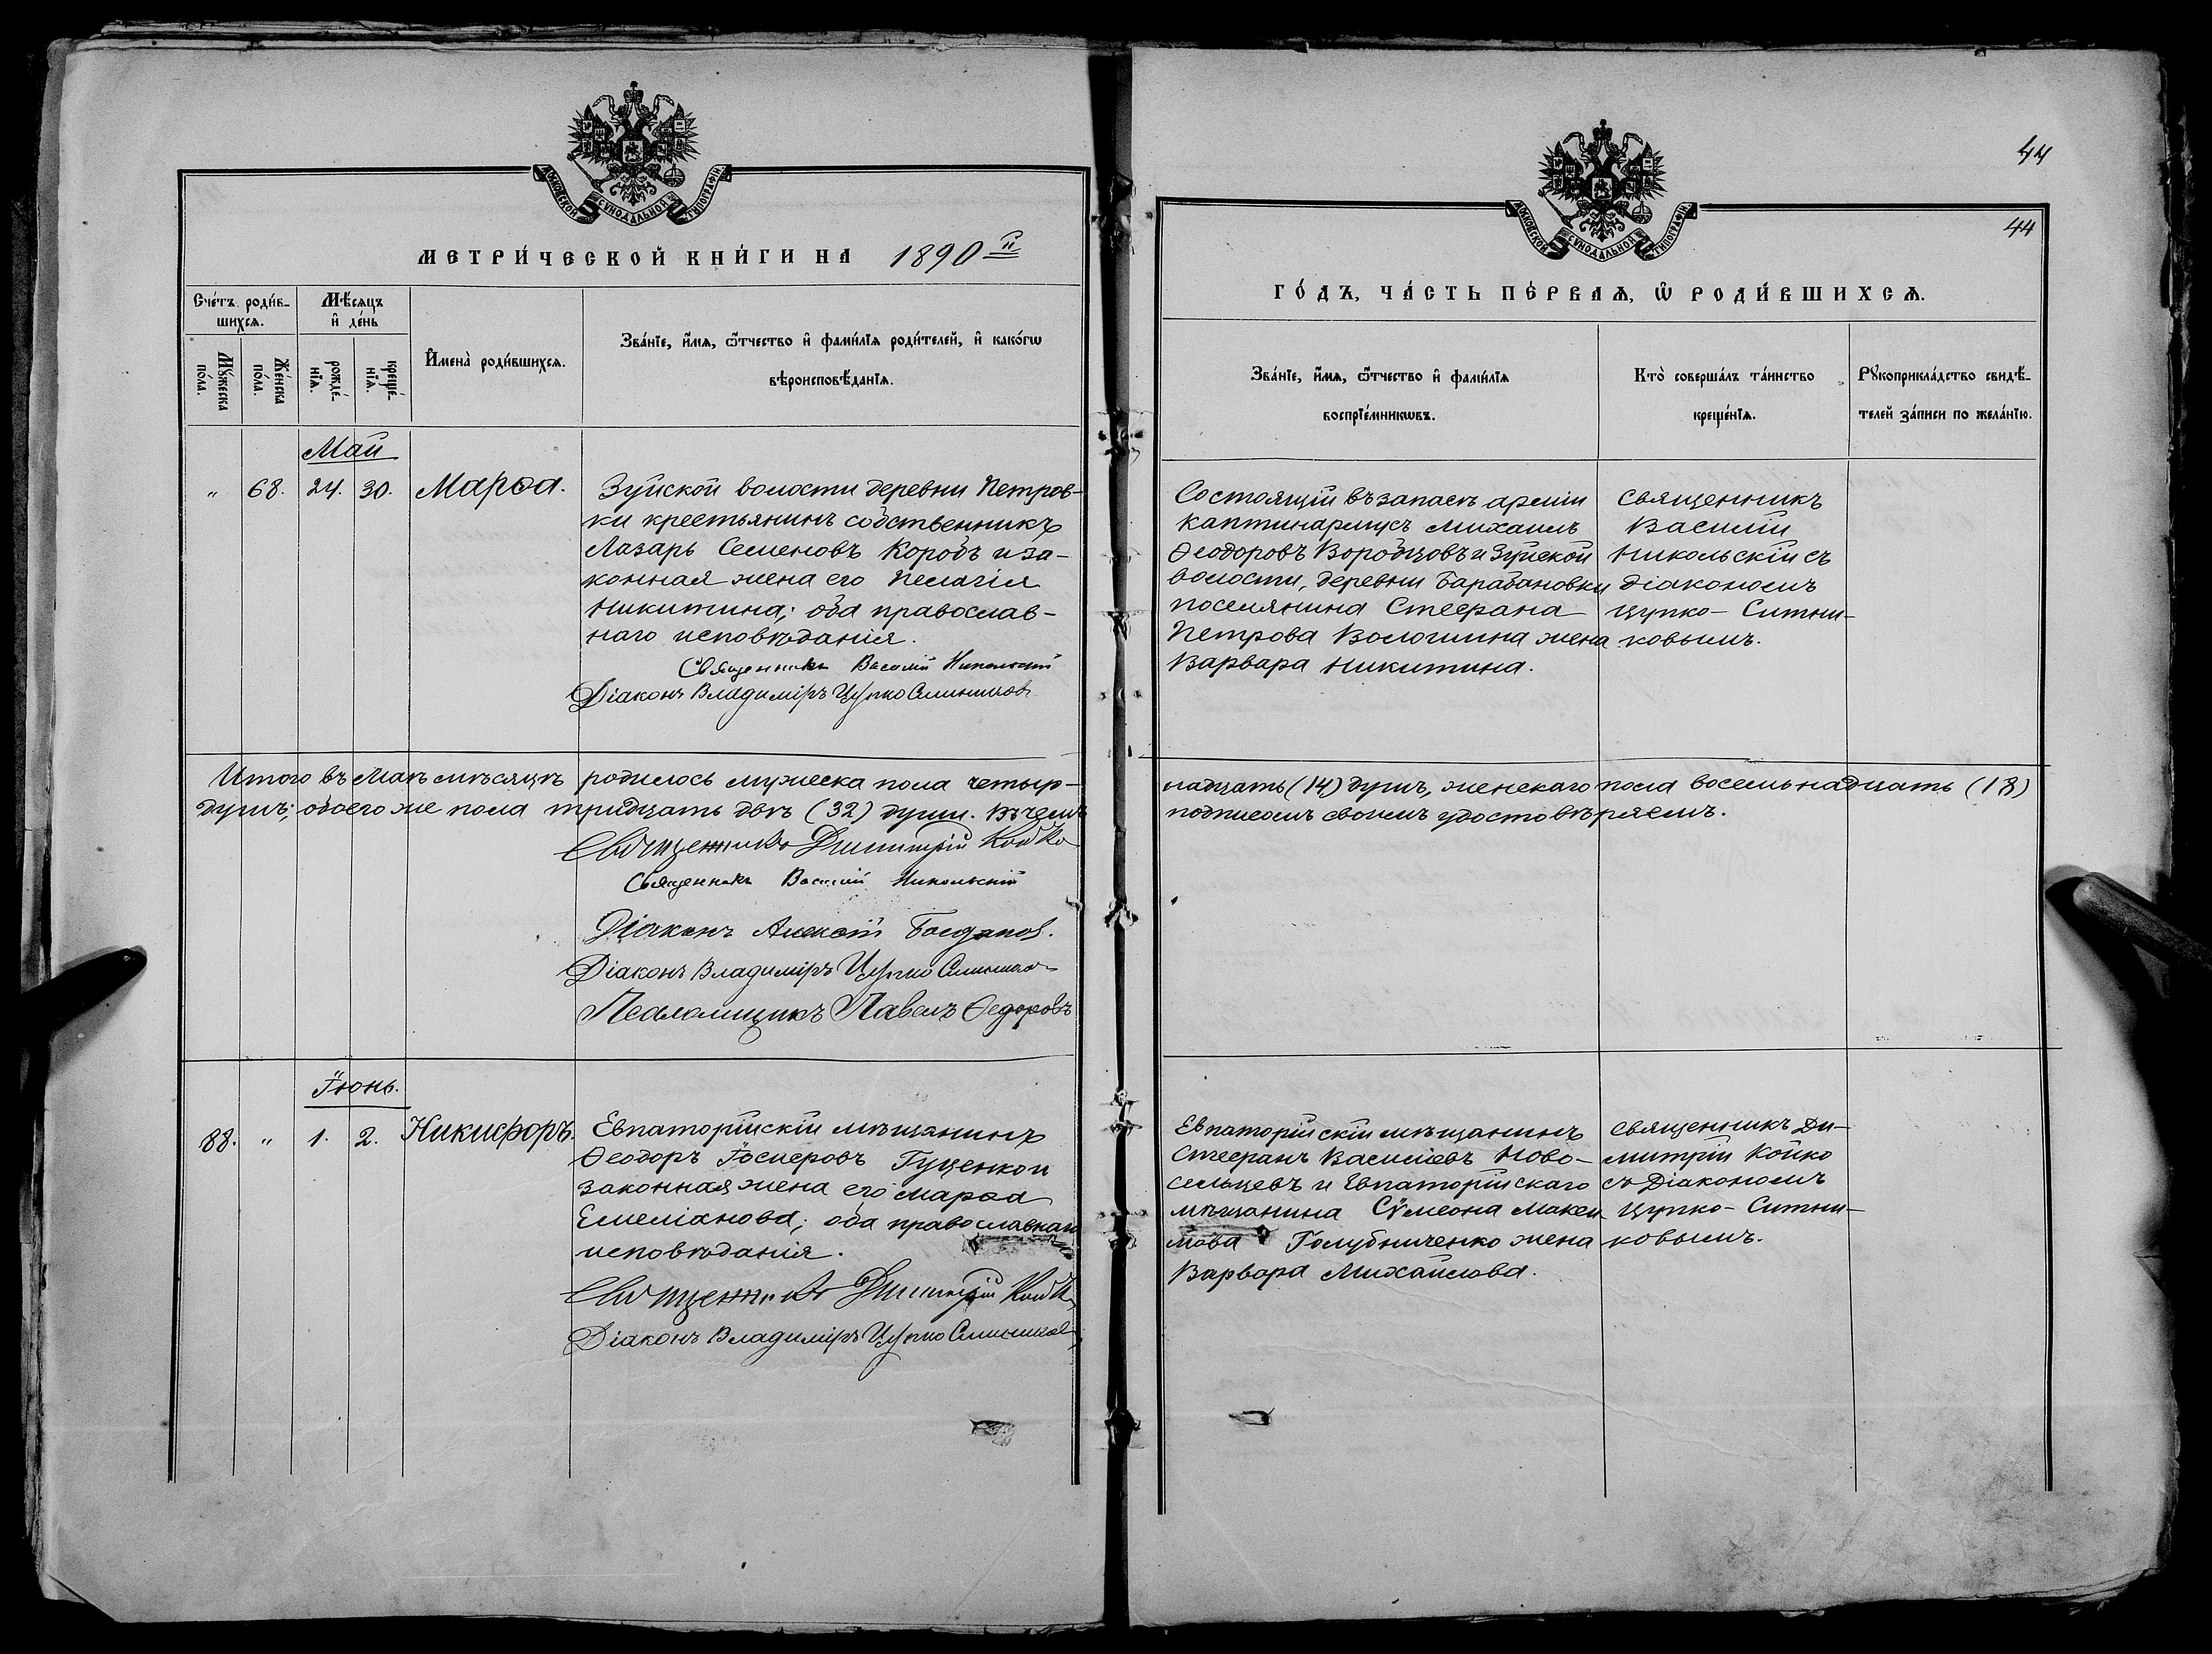 МОСКОВСКОЙ СѴНОДАЛЬНОЙ ТИПОГРАФІИ
МЕТРИ́ЧЕСКОЙ КНИ́ГИ НА 1890 й
Сче́тъ роди́в-
шихсѧ.
Мѣ́сѧцъ
и҆ де́нь
Мꙋ́жеска
по́ла.
Же́нска
по́ла.
рожде́-
нїѧ.
креще́-
нїѧ.
И҆мена̀ роди́вшихсѧ.
Зва́нїе, и҆́мѧ, ѻ҆́тчество и҆ фами́лїѧ роди́телей, и҆ како́гѡ
вѣроисповѣ́данїѧ.
Май
„ 68. 24. 30. Марѳа.
Зуйской волости деревни Петров-
ки крестьянинъ собственникъ
Лазарь Семеновъ Коробъ и за-
конная жена его Пелагія
Никитина; оба православ-
наго исповѣданія.
Священникъ Василій Никольскій
Діаконъ Владиміръ Цупко Ситников
Итого въ Маѣ мѣсяцѣ родилось мужеска пола четыр-
душъ; обоего же пола тридцать двѣ (32) души. Въ чемъ
Священникъ Димитрій Койко
Священникъ Василій Никольскій
Діаконъ Алексій Богданов.
Діаконъ Владиміръ Цупко Ситников
Псаломщикъ Павелъ Ѳедоровъ
Іюнь.
88. „ 1. 2. Никифоръ.
Евпаторійскій мѣщанинъ
Ѳеодоръ Іосифовъ Гуценко и
законная жена его Марѳа
Емеліанова; оба православнаго
исповѣданія.
Священникъ Димитрій Койко
Діаконъ Владиміръ Цупко Ситников
44
44
МОСКОВСКОЙ СѴНОДАЛЬНОЙ ТИПОГРАФІИ
ГО́ДЪ, ЧА́СТЬ ПЕ́РВАѦ, Ѡ҆ РОДИ́ВШИХСѦ.
Зва́нїе, и҆́мѧ, ѻ҆́тчество и҆ фами́лїѧ
воспрїе́мникѡвъ.
Кто̀ соверша́лъ та́инство
креще́нїѧ.
Рꙋкоприкла́дство свидѣ́-
телей за́писи по жела́нїю.
Состоящій въ запасѣ арміи
каптинармусъ Михаилъ
Ѳеодоровъ Вородцовъ и Зуйской
волости, деревни Барабановки
поселянина Стефана
Петрова Вологшина жена
Варвара Никитина.
Священникъ
Василій
Никольскій съ
Діакономъ
Цупко-Ситни-
ковымъ.
надцать (14) душъ, женскаго пола восемьнадцать (18)
подписомъ своимъ удостовѣряемъ.
Евпаторійскій мѣщанинъ
Стефанъ Василіевъ Ново-
сельцевъ и Евпаторійскаго
мѣщанина Сѵмеона Макси-
мова Голубниченко жена
Варвара Михаилова.
Священникъ Ди-
митрій Койко
съ Діакономъ
Цупко-Ситни-
ковымъ.